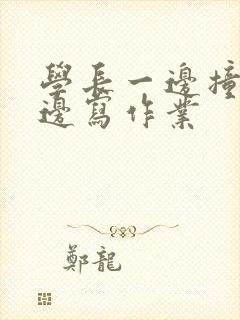 學長一邊撞
邊寫作業
鄭龍